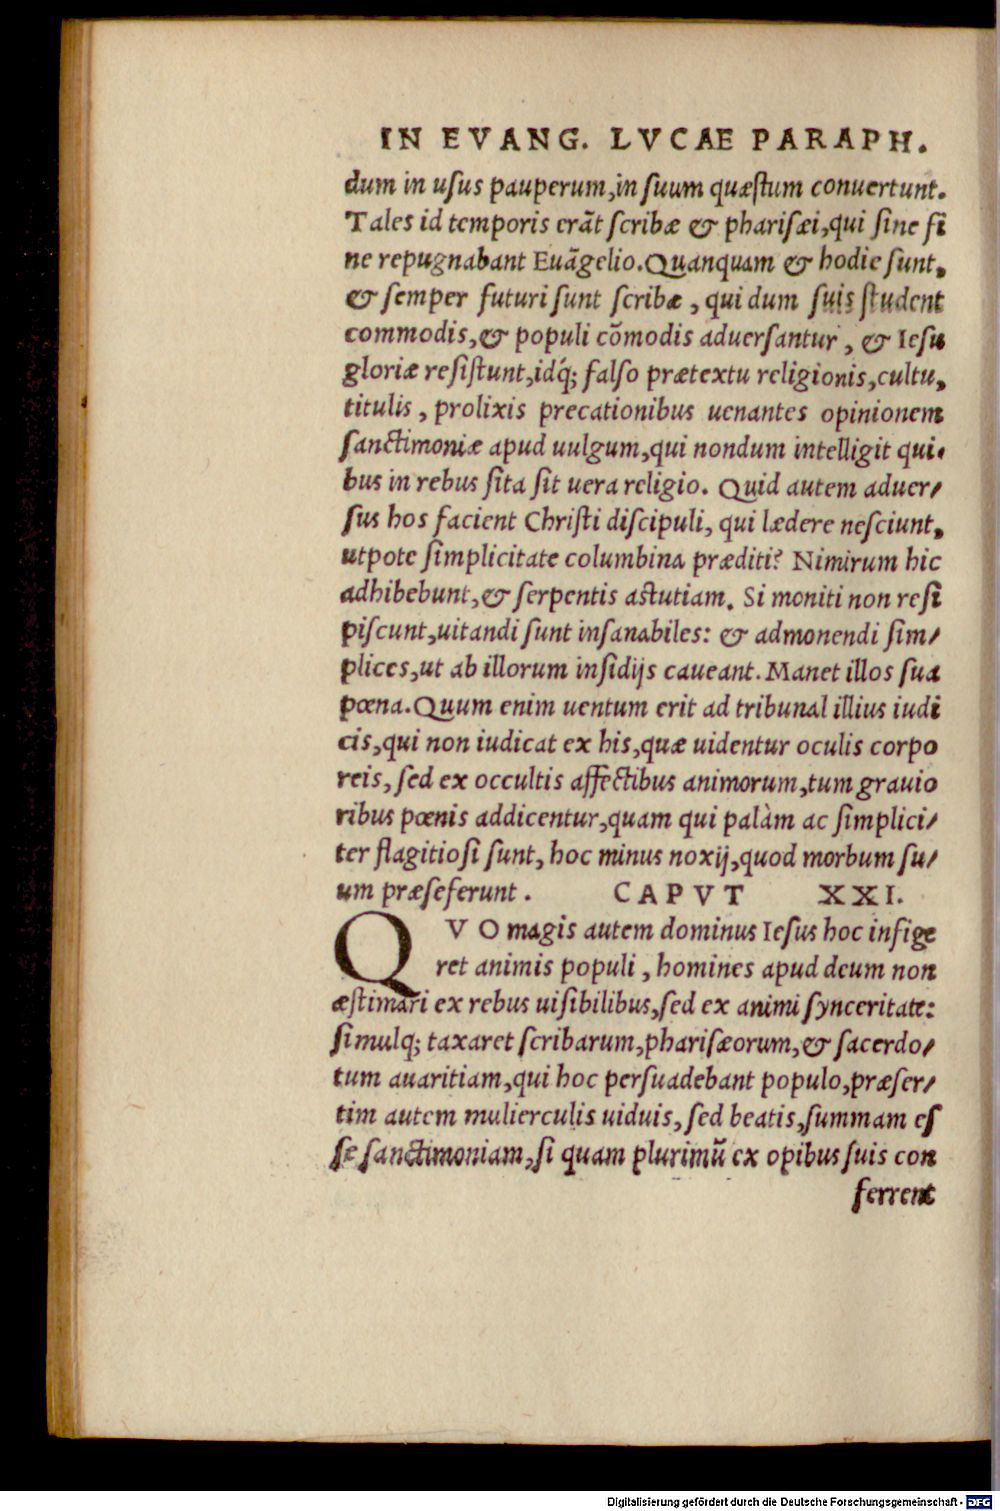 IN EVANG. LVCAE PARAPH.
dum in usus pauperum, in suum quæstum conuertunt.
Tales id temporis erãt scribæ & pharisæi, qui sine fi
ne repugnabant Euãgelio. Quanquam & hodie sunt,
& semper futuri sunt scribæ, qui dum suis student
commodis, & populi cõmodis aduersantur, & Iesu
gloriæ resistunt, idq́; falso prætextu religionis, cultu,
titulis, prolixis precationibus uenantes opinionem
sanctimoniæ apud uulgum, qui nondum intelligit qui-
bus in rebus sita sit uera religio. Quid autem aduer/
sus hos facient Christi discipuli, qui lædere nesciunt,
utpote simplicitate columbina præditi? Nimirum hic
adhibebunt, & serpentis astutiam. Si moniti non resi
piscunt, uitandi sunt insanabiles: & admonendi sim/
plices, ut ab illorum insidijs caueant. Manet illos sua
pœna. Quum enim uentum erit ad tribunal illius iudi
cis, qui non iudicat ex his, quæ uidentur oculis corpo
reis, sed ex occultis affectibus animorum, tum grauio
ribus pœnis addicentur, quam qui palàm ac simplici/
ter flagitiosi sunt, hoc minus noxij, quod morbum su/
um præseferunt. CAPVT XXI.
QVO magis autem dominus Iesus hoc infige
ret animis populi, homines apud deum non
æstimari ex rebus uisibilibus, sed ex animi synceritate:
simulq; taxaret scribarum, pharisæorum, & sacerdo/
tum auaritiam, qui hoc persuadebant populo, præser/
tim autem mulierculis uiduis, sed beatis, summam es
se sanctimoniam, si quam plurimũ ex opibus suis con
ferrent
Digitalisierung gefördert durch die Deutsche Forschungsgemeinschaft - DFG